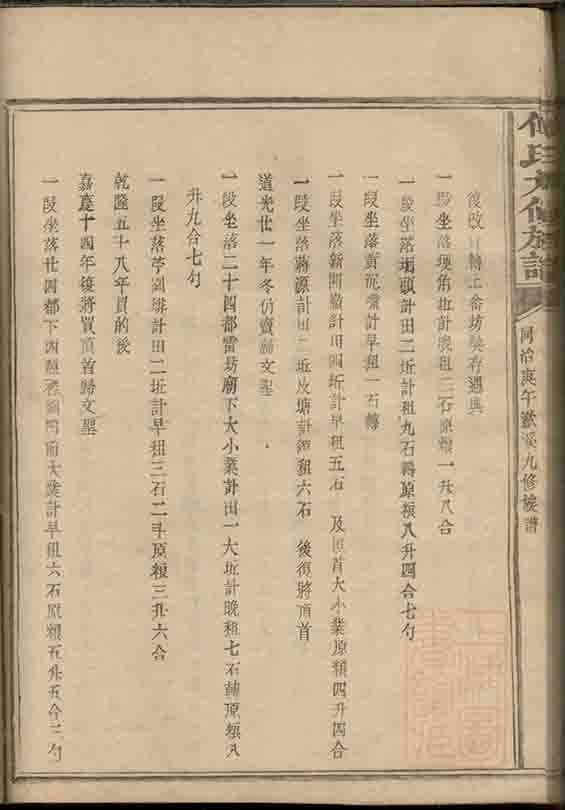 氏九修族譜
同治庚午歙溪九修梭譜
後改 轉上畲坊契存遇興
一段坐落 坵計晚租三石原糧一升八合
一段坐落 頭計田二坵計租九石 原糧八升四合七勺
一段坐落黄沉 計早租一石 
一段坐落新 計田四坵計早租五石 及 首大小業原糧四升四合
一段坐落蔣源計田二坵及塘計 租六石 後復將頂首
道光廿一年冬仍賣歸文聖
一段坐落二十四都雷坊廟下大小業計田一大坵計晚租七石 原糧八
升九合七勺
一段坐落 計田二坵計早租三石二斗原糧三升六合
乾隆五十八年買的後
嘉慶十四年復將買頂首歸文聖
一段坐落廿四都下 門前大業計早租六石原糧五升五合二勺
上海圖書館藏